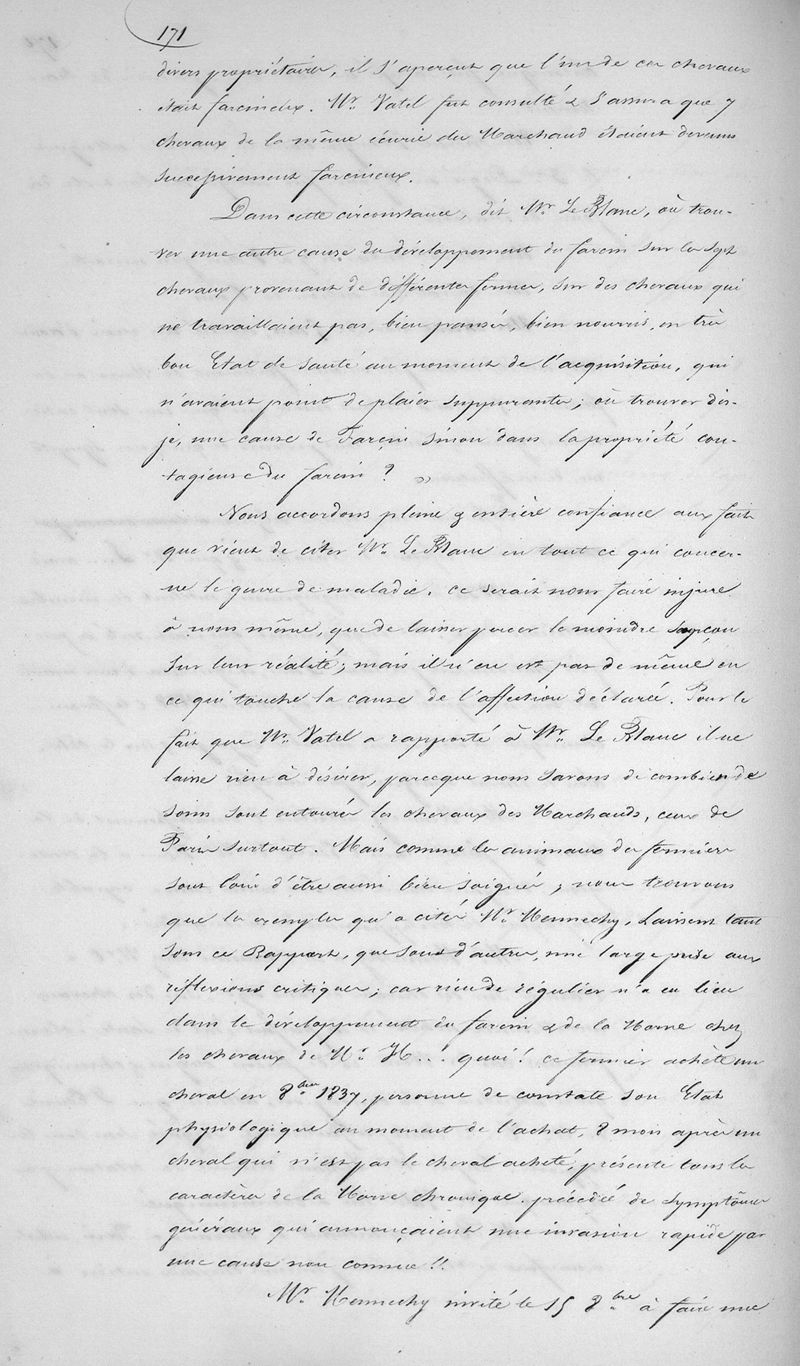 171
divers propriétaires, il s'aperçut que l'un de ces chevaux
était farcineux. Mr. Vatel fut consulté & s'assura que 7
chevaux de la même écurie du Marchand étaient devenus
successivement farcineux.
Dans cette circonstance, dit Mr. Le Blanc, où trou-
ver une autre cause du développement du farcin sur les sept
chevaux provenant de différentes fermes, sur des chevaux qui
ne travaillaient pas, bien pansés, bien nourris, en très
bon Etat de santé au moment de l'acquisition, qui
n'avaient point de plaies suppurantes; où trouver dis-
je, une cause de Farcin sinon dans la propriété con-
tagieuse du farcin ? »
Nous accordons pleine & entière confiance aux faits
que vient de citer Mr. Le Blanc en tout ce qui concer-
ne le genre de maladie. ce serait nous faire injure
à nous même, que de laisser percer le moindre soupçon
sur leur réalité; mais il n'en est pas de même en
ce qui touche la cause de l'affection déclarée. Pour le
fait que Mr. Vatel a rapporté à Mr. Le Blanc il ne
laisse rien à désirer, parceque nous savons de combien de
soins sont entourés les chevaux des Marchands, ceux de
Paris surtout. Mais comme les animaux des fermiers
sont loin d'être aussi bien soignés, nous trouvons
que les exemples qu'a cités Mr. Hennechy, Laissent tant
sous ce Rapport, que sous d'autres, une large prise aux
réflexions critiques; car rien de régulier n'a eu lieu
dans le développement du farcin & de la Morve chez
les chevaux de Mr. H... quoi! ce fermier achète un
cheval en 8bre 1837, personne de constate son Etat
physiologique au moment de l'achat, 8 mois après un
cheval qui n'est pas le cheval acheté, présente tous les
caractères de la Morve chronique précédée de symptômes
généraux qui annonçaient une invasion rapide par
une cause non connue !!
Mr. Hennechy invité le 15 8bre à faire une